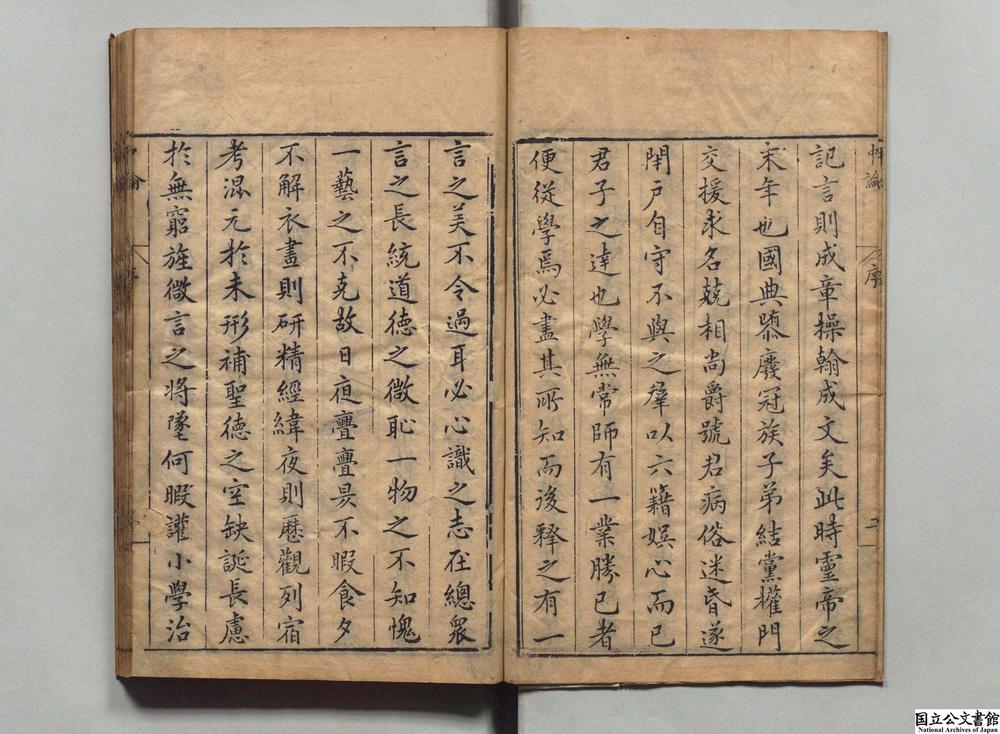 中論
序
二
記言則成章操翰成文矣此時靈帝之
末年也國典隳廢冠族子弟結黨權門
交援求名競相尚爵號君病俗迷昏遂
閉戶自守不與之羣以六籍娯心而已
君子之達也學無常師有一業勝己者
便從學焉必盡其所知而後釋之有一
言之美不令過耳必心識之志在總衆
言之長統道德之微恥一物之不知愧
一藝之不克故日夜亹亹昃不暇食夕
不解衣晝則研精經緯夜則歷觀列宿
考混元於未形補聖德之空缺誕長慮
於無窮旌微言之將墜何暇讙小學治
国立公文書館
National Archives of Japan